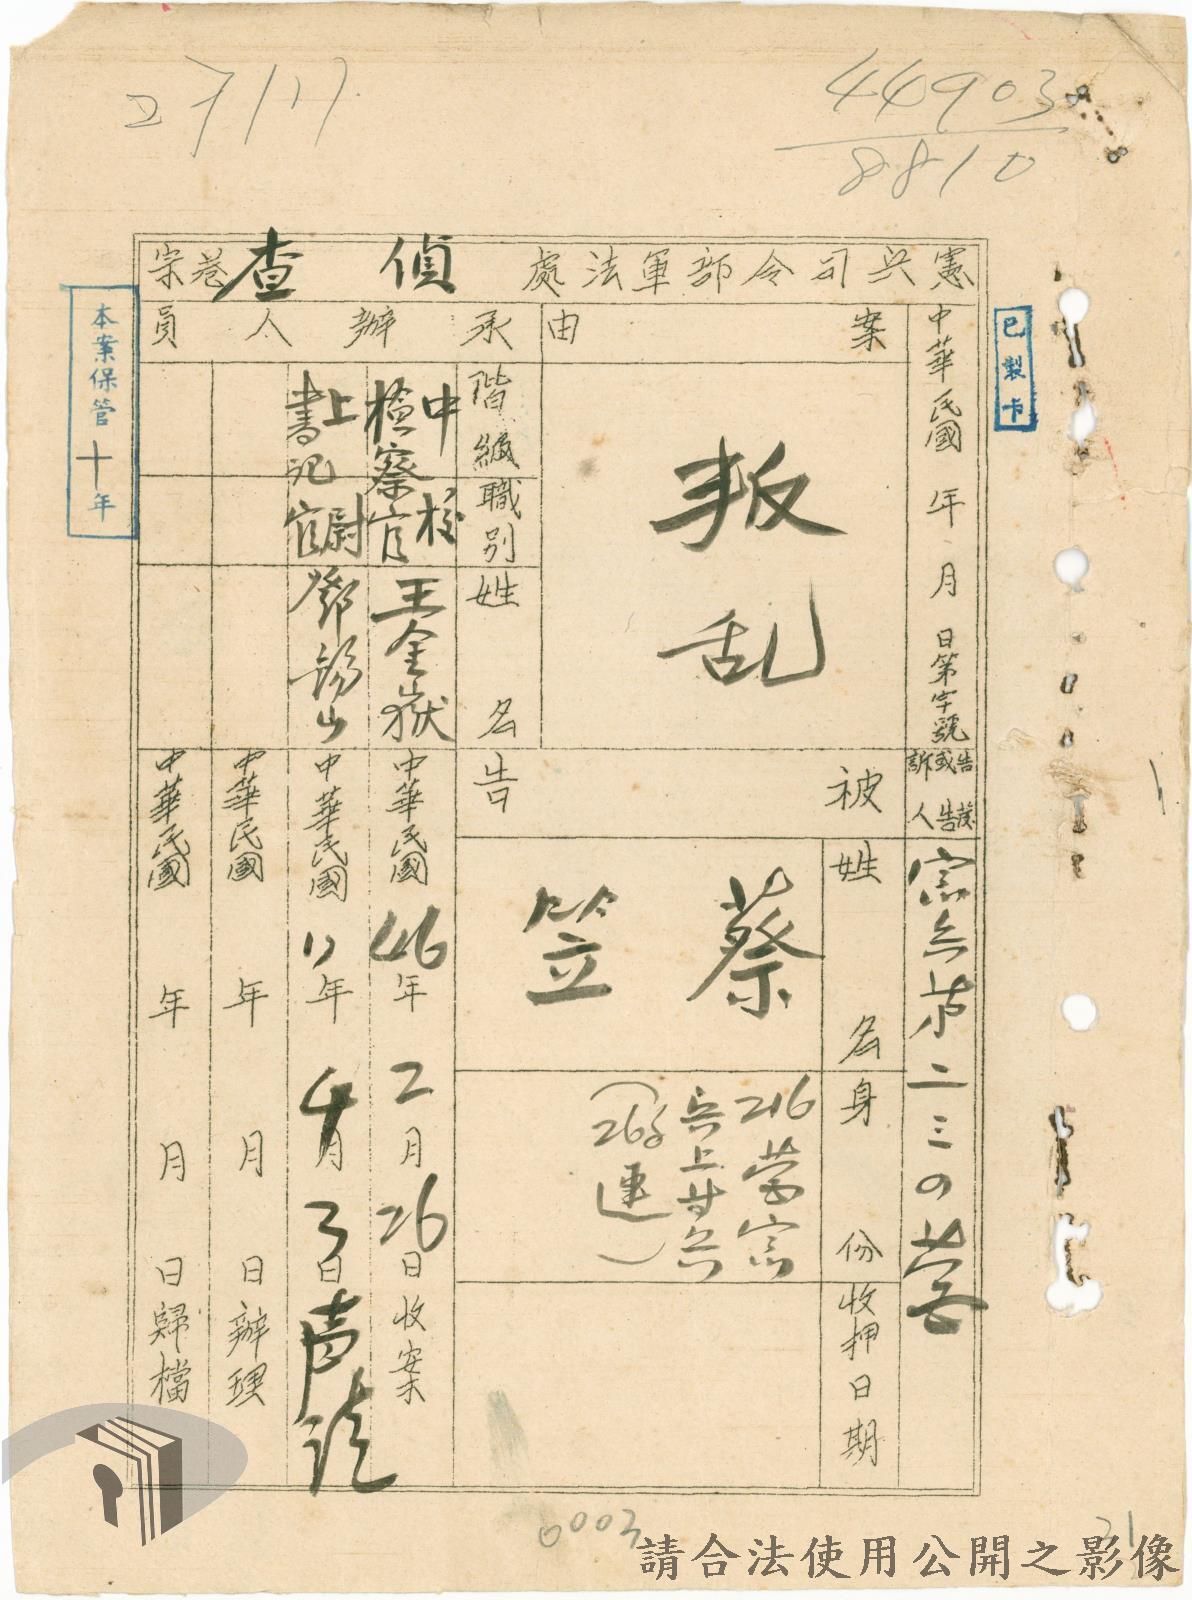 27/17
44903
8810
憲兵司令部軍法處 偵查 卷宗
已製卡
本案保管十年
中華民國 年 月 日第 字 號
告訴或告發人
憲兵第二三四營
案由
叛乱
承辦人員
階級職別
姓名
中校檢察官
王金嶽
上尉書記官
鄧錫山
被告
姓名
蔡笠
身份
216營憲
兵上等兵
連
收押日期
中華民國46年2月26日收案
中華民國 年4月3日声請
中華民國 年 月 日辦理
中華民國 年 月 日歸檔
0003
31
請合法使用公開之影像